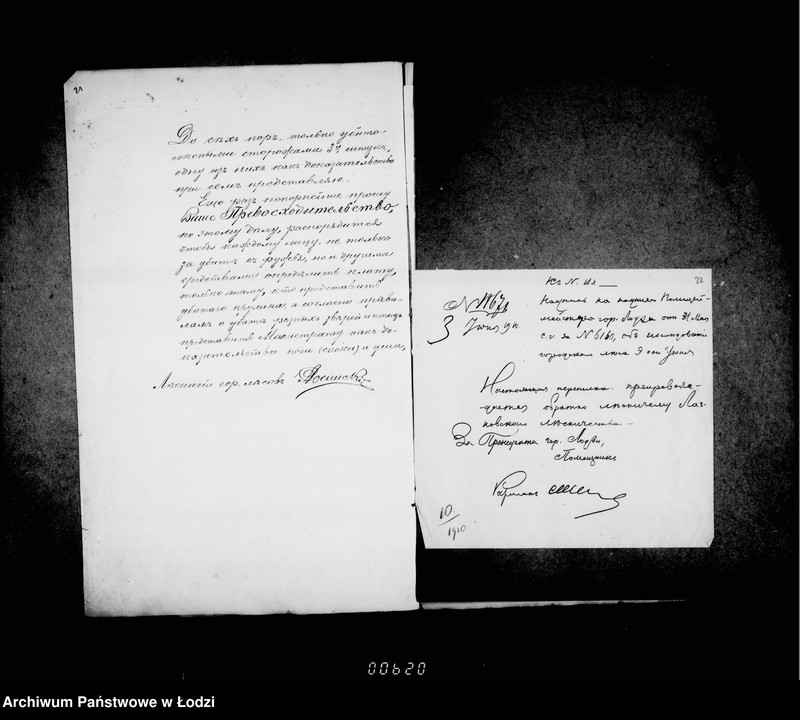 21
До сѣхъ поръ, только убито
лѣсными сторожами 3 штуки,
одну изъ нихъ какъ доказательство
при семъ представляю.
Ещо разъ покорнѣйше прошу
Ваше Превосходительство,
по этому дѣлу, распорядится
чтобы каждому лицу, не только
за убитъ съ ружья, но и другими
средствами опредѣлить плату,
только тому, кто представитъ
убитаго а согласно прави-
ламъ о убитъ разныхъ звѣрей и птицъ
представитъ Магистрату какъ до-
казательство ноги и уши,
Лѣсничій гор. лѣсовъ
22
Къ №
№ 1167
3
на надписи Полицій-
мейстера гор. Лодзи отъ 31 Мая
с. г. за № 6160, объ
Настоящая переписка препровож-
дается обратно лѣсничему
лѣсничества
За Президента гор. Лодзи,
Помощникъ
10.
1910
00620
Archiwum Państwowe w Łodzi